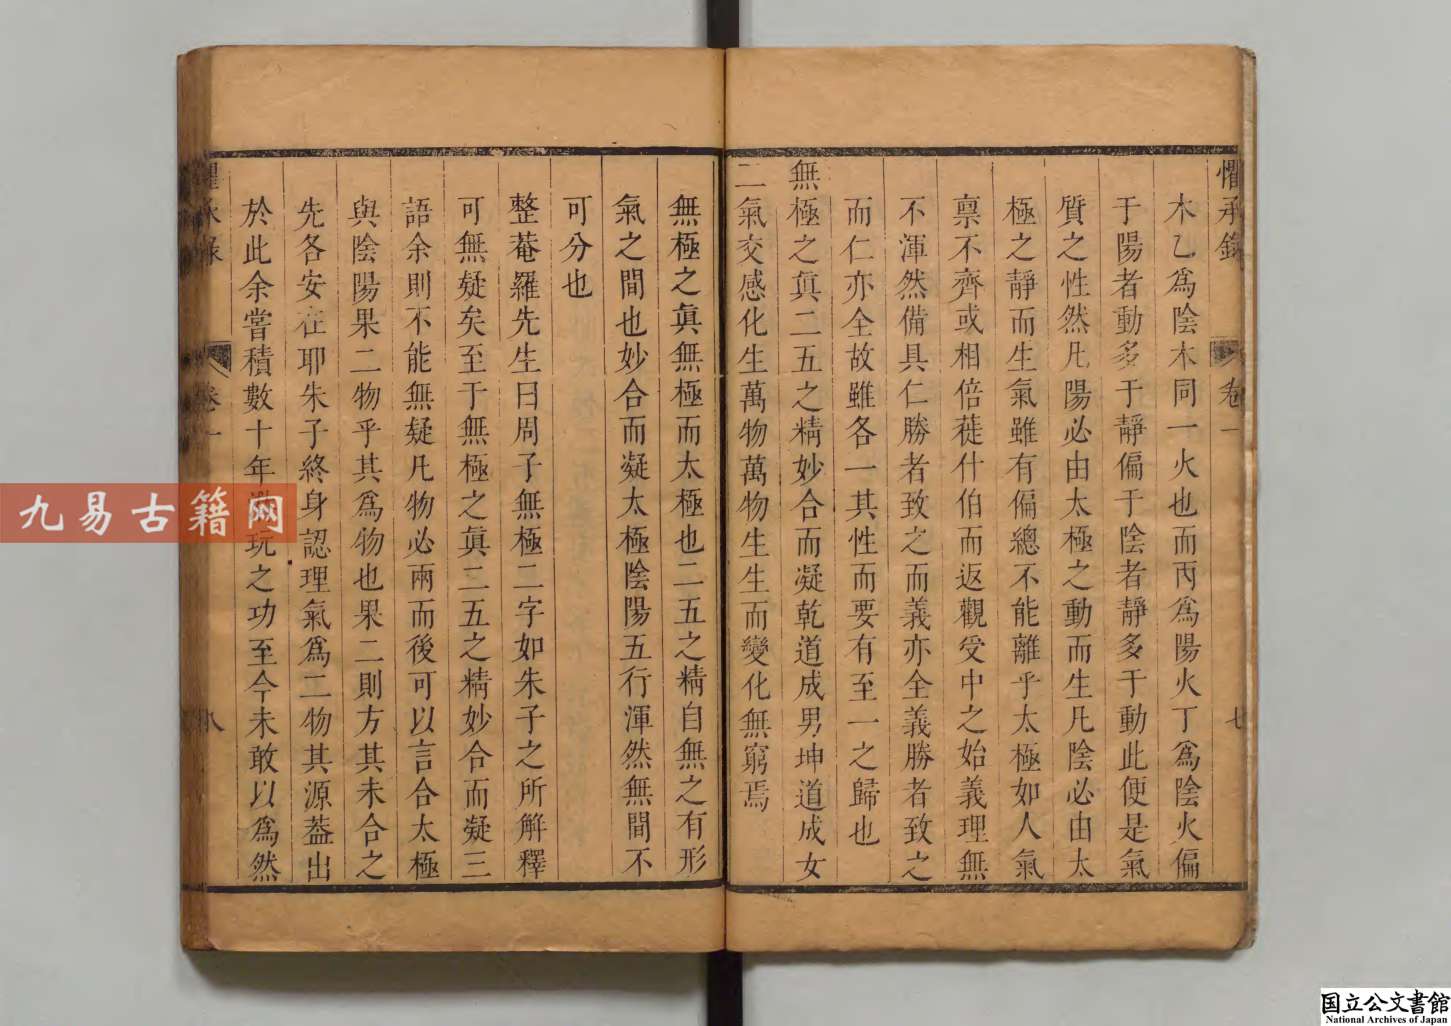 懼承錄
卷一
七
木乙爲陰木同一火也而丙爲陽火丁爲陰火偏
于陽者動多于靜偏于陰者靜多于動此便是氣
質之性然凡陽必由太極之動而生凡陰必由太
極之靜而生氣雖有偏總不能離乎太極如人氣
禀不齊或相倍蓰什伯而返觀受中之始義理無
不渾然備具仁勝者致之而義亦全義勝者致之
而仁亦全故雖各一其性而要有至一之歸也
無極之眞二五之精妙合而凝乾道成男坤道成女
二氣交感化生萬物萬物生生而變化無窮焉
無極之眞無極而太極也二五之精自無之有形
氣之間也妙合而凝太極陰陽五行渾然無間不
可分也
整菴羅先生曰周子無極二字如朱子之所解釋
可無疑矣至于無極之眞二五之精妙合而凝三
語余則不能無疑凡物必兩而後可以言合太極
與陰陽果二物乎其爲物也果二則方其未合之
先各安在耶朱子終身認理氣爲二物其源蓋出
於此余嘗積數十年玩之功至今未敢以爲然
卷一
八
九易古籍网
国立公文書館
National Archives of Japan